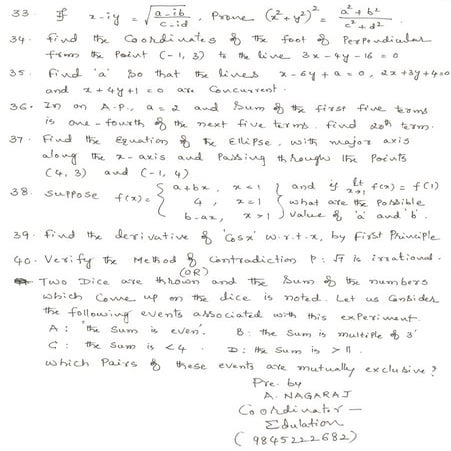 33. If x-iy = √(a-ib / c-id), Prove (x²+y²)² = a²+b² / c²+d²
34. Find the Coordinates of the foot of Perpendicular
from the Point (-1, 3) to the line 3x-4y-16=0
35. Find 'a' so that the lines x-6y+a=0, 2x+3y+4=0
and x+4y+1=0 are Concurrent.
36. In an A.P., a=2 and Sum of the first five terms
is one-fourth of the next five terms. find 20th term.
37. Find the Equation of the Ellipse, with major axis
along the x-axis and Passing through the Points
(4, 3) and (-1, 4)
38. Suppose f(x) = { a+bx, x<1
4, x=1
b-ax, x>1 } and if lt x→1 f(x) = f(1)
what are the possible
value of 'a' and 'b'.
39. Find the derivative of 'Cosx' w.r.t.x, by First Principle
40. Verify the Method of Contradiction P: √7 is irrational.
(OR)
Two Dice are thrown and the Sum of the numbers
which Come up on the dice is noted. Let us Consider
the following events associated with this experiment
A: 'the Sum is even'. B: the Sum is multiple of 3'
C: the Sum is <4. D: the Sum is >11.
which Pairs of these events are mutually exclusive?
Pre. by
A. NAGARAJ
Coordinator –
Edulation
(9845222682)